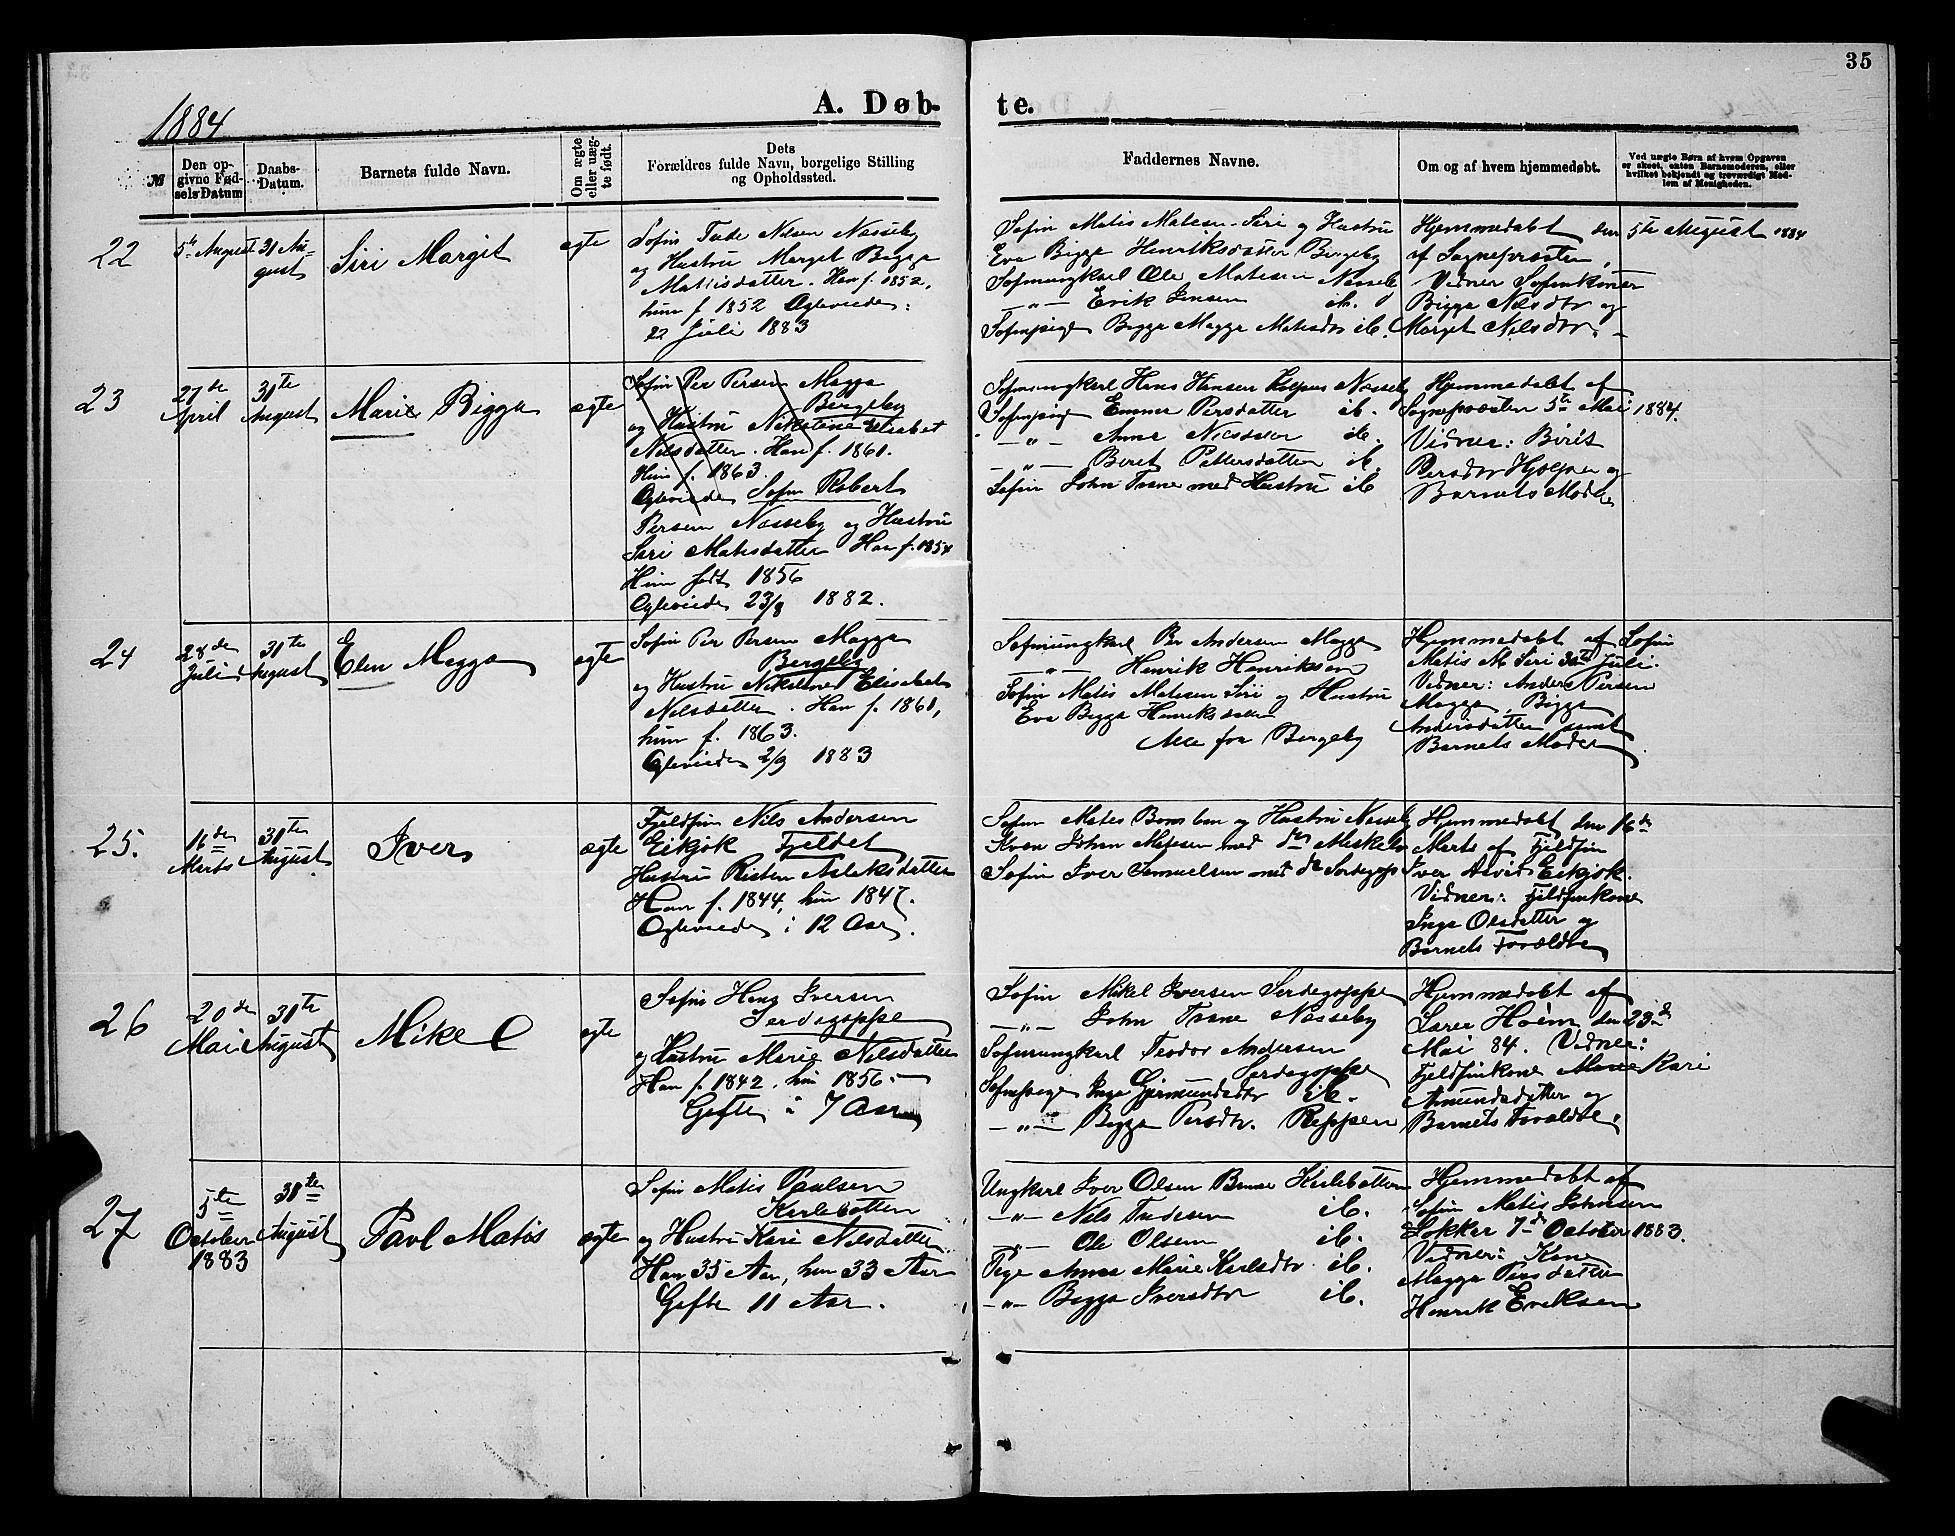 35
1884
A. Døb-
te.
№
Den op-
givne Fød-
sels Datum
Daabs-
Datum.
Barnets fulde Navn.
Om ægte
eller uæg-
te født.
Dets
Forældres fulde Navn, borgelige Stilling
og Opholdssted.
Faddernes Navne.
Om og af hvem hjemmedøbt.
Ved uægte Børn af hvem Opgaven
er skeet, enten Barnemoderen, eller
hvilket bekjendt og troværdigt Med-
lem af Menigheden.
22
5te August
31 Au-
gust
Siri Margit
ægte
Søfin Tude Nilsen Næsseby
og Hustru Marget Bigga
Mathisdatter. Han f. 1852,
hun f. 1852 Ægteviede
22 Juli 1883
Søfin Matis Matisen Siri og Hustru
Eva Bigga Henriksdatter Bergeby
Søfinungkarl Ole Matisen Næsseb
—"— Erik Jensen ib.
Søfinpige Bigga Magga Matisdtr ib.
Hjemmedøbt den 5te August 1884
af Sognepræsten,
Vidner Søfinkoner
Bigga Nilsdtr og
Marget Nilsdtr.
23
27de
April
31te
August
Marie Bigga
ægte
Søfin Per Persen Magga
Bergeby
og Hustru Nikoline Elisabet
Nilsdatter. Han f. 1861.
Hun f. 1863.
Ægteviede Søfin Robert
Persen Næsseby og Hustru
Siri Matisdatter Han f. 1854
Hun født 1856
Ægteviede 23/8 1882.
Søfinungkarl Hans Hansen Næsseby
Søfinpige Emma Persdatter ib.
—"— Anne ib.
—"— Beret Pettersdatter ib.
Søfin John Trane med Hustru ib
Hjemmedøbt af
Sognepræsten 5te Mai 1884.
Vidner: Berit
Persdtr Hjælper og
Barnets Moder
24
28de
Juli
31te
August
Elen Magga
ægte
Søfin Per Persen Magga
Bergeby
og Hustru Nikoline Elisabet
Nilsdatter. Han f. 1861,
hun f. 1863.
Ægteviede 2/9 1883
Søfinungkarl Per Andersen Magga
—"— Henrik Henriksen
Søfin Matis Matisen Siri og Hustru
Eva Bigga Henriksdatter
Alle fra Bergeby
Hjemmedøbt af Søfin
Matis M. Siri 30te Juli.
Vidner: Anders Persen
Magga, Bigga
Andersdatter samt
Barnets Moder
25.
16de
Marts
31te
August
Iver
ægte
Fjeldfin Nils Andersen
Eikjok Fjeldet
Hustru Risten Aslaksdatter
Han f. 1844, hun 1847.
Ægteviede i 12 Aar.
Søfin Mates og Hustru Næsseby
Kven Johan Matisen med do
Søfin Iver Samuelsen med do
Hjemmedøbt den 16de
Marts af Fjeldfin
Iver Eikjok.
Vidner: Fjeldfinkone
Inga Olsdatter og
Barnets Forældre
26
20de
Mai
31te
August
Mikel
ægte
Søfin Hans Iversen
Serdegoppe
og Hustru Marie Nilsdatter
Han f. 1842, hun 1856.
Gifte i 7 Aar
Søfin Mikel Iversen Serdegoppe
—"— John Trane Næsseby
Søfinungkarl Teodor Andersen
Serdegoppe
Søfinpige Inga Gjermundsdtr ib.
—"— Bigga Persdtr. Reppen
Hjemmedøbt af
Lærer Holm den 23de
Mai 84. Vidner:
Fjeldfinkone Marie Kari
Amundsdatter og
Barnets Forældre.
27
5te
October
1883
31te
August
Pavl Matis
ægte
Søfin Matis Paulsen
Karlebotten
og Hustru Kari Nilsdatter
Han 35 Aar, hun 33 Aar
Gifte 11 Aar.
Ungkarl Iver Olsen Karlebotten
—"— Nils Tudesen ib.
—"— Ole Olsen ib.
Pige Anna Marie Karlsdtr ib.
—"— Bigga Iversdtr ib.
Hjemmedøbt af
Søfin Matis Johnsen
Lokker 7de October 1883.
Vidner: Kone
Magga Persdatter
Henrik Eriksen